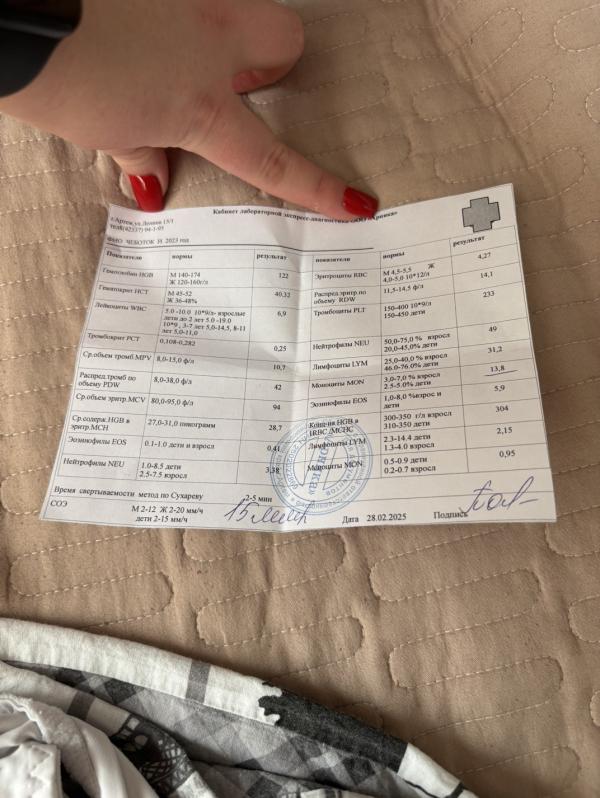 Кабинет лабораторной экспресс-диагностики ООО «Аришка»
г.Артем,ул.Ленина 15/1
тел8(42337) 94-1-95
ФИО ЧЕБОТОК Н 2023 год
Показатели нормы результат
Гемоглобин HGB М 140-174 122
Ж 120-160г/л
Гематокрит HCT М 45-52 40,32
Ж 36-48%
Лейкоциты WBC 5.0 -10.0 10*9/л- взрослые 6,9
дети до 2 лет 5.0 -19.0
10*9 , 3-7 лет 5,0-14,5, 8-11
лет 5,0-11,0
Тромбокрит PCT 0,108-0,282 0,25
Ср.объем тромб.MPV 8,0-15,0 ф/л 10,7
Распред.тромб по 8,0-38,0 ф/л 42
объему PDW
Ср.объем эритр.MCV 80,0-95,0 ф/л 94
Ср.содерж.HGB в 27,0-31,0 пикограмм 28,7
эритр.MCH
Эозинофилы EOS 0.1-1.0 дети и взросл 0,41
Нейтрофилы NEU 1.0-8.5 дети 3,38
2.5-7.5 взросл
показатели нормы результат
Эритроциты RBC М 4,5-5,5 Ж 4,27
4,0-5,0 10*12/л
Распред.эритр.по 11,5-14,5 ф/л 14,1
объему RDW
Тромбоциты PLT 150-400 10*9/л 233
150-450 дети
Нейтрофилы NEU 50,0-75,0 % взросл 49
20,0-45,0% дети
Лимфоциты LYM 25,0-40,0 % взросл 31,2
46.0-76.0% дети
Моноциты MON 3,0-7,0 % взросл 13,8
2.5-5.0% дети
Эозинофилы EOS 1,0-8,0 %взрос и 5,9
дети
Конц-ия HGB в 300-350 г/л взросл 304
1RBC /MCHC 310-350 дети
Лимфоциты LYM 2.3-14.4 дети 2,15
1.3-4.0 взросл
Моноциты MON 0.5-0.9 дети 0,95
0.2-0.7 взросл
Время свертываемости метод по Сухареву 2-5 мин
СОЭ М 2-12 Ж 2-20 мм/ч 15 мм/ч
дети 2-15 мм/ч
Дата 28.02.2025 Подпись